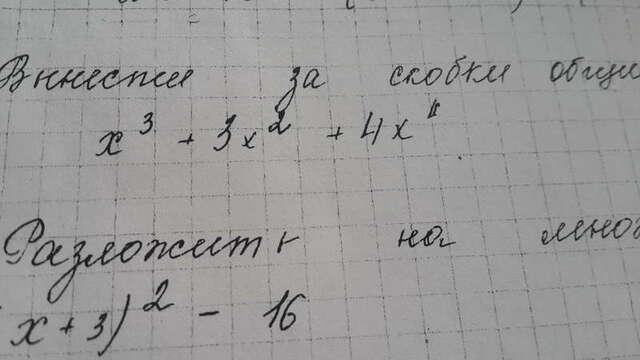 Вынести за скобки общи
x³ + 3x² + 4x⁴
Разложить на множ
x + 3)² - 16